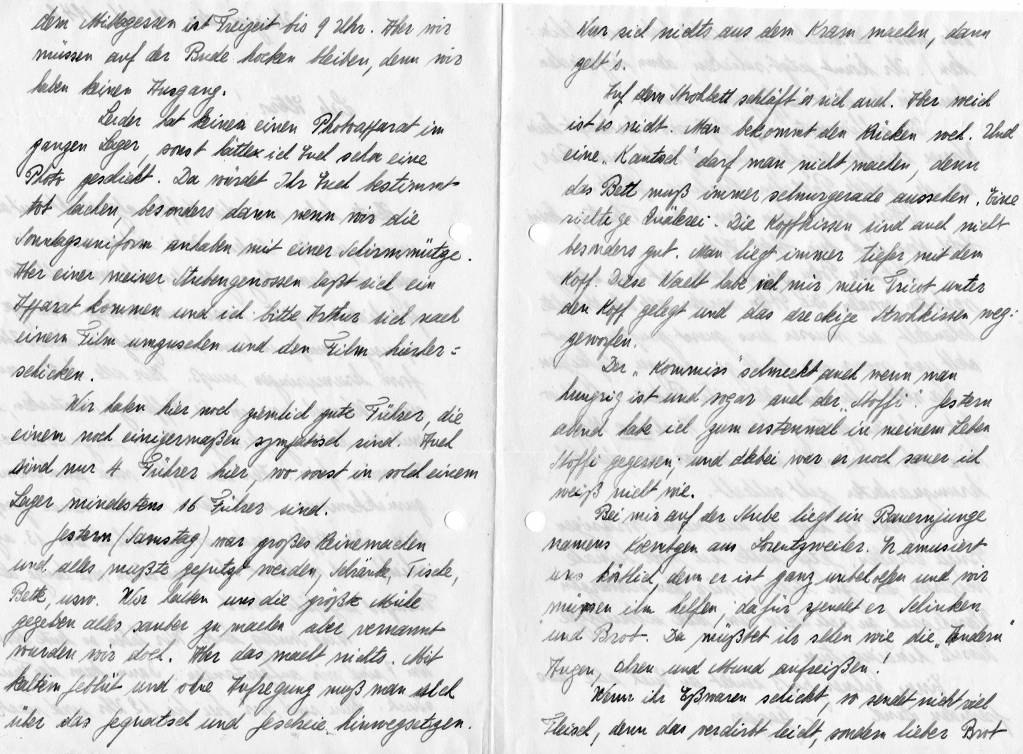 dem Mittagessen ist Freizeit bis 9 Uhr. Aber wir
müssen auf der Bude hocken bleiben, denn wir
haben keinen Ausgang.
Leider hat keiner einen Photoaffarat im
ganzen Lager, sonst hätte ich Euch schon eine
Photo geschickt. Da würdet Ihr Euch bestimmt
tot lachen, besonders dann wenn wir die
Sonntagsuniform anhaben mit einer Schirmmütze.
Aber einer meiner Stubengenossen läßt sich ein
Affarat kommen und ich bitte Arthur sich nach
einem Film umzusehen und den Film hierher=
schicken.
Wir haben hier noch ziemlich gute Führer, die
einem noch einigermaßen sympatisch sind. Auch
sind nur 4 Führer hier, wo sonst in solch einem
Lager mindestens 16 Führer sind.
Gestern (Samstag) war großes Reinemachen
und alles mußte geputzt werden, Schränke, Tische,
Bette, usw. Wir hatten uns die größte Mühe
gegeben alles sauber zu machen aber
wurden wir doch. Aber das macht nichts. Mit
kaltem Geblüt und ohne Aufregung muß man sich
über das Gequatsch und Geschreie hinwegsetzen.
Nur sich nichts aus dem Kram machen, dann
geht's.
Auf dem Strohbett schläft's sich auch. Aber weich
ist es nicht. Man bekommt den Rücken weh. Und
eine „Kautsch" darf man nicht machen, denn
das Bett muß immer schnurgerade aussehen. Eine
richtige Quälerei. Die Kopfkissen sind auch nicht
besonders gut. Man liegt immer tiefer mit dem
Kopf. Diese Nacht habe ich mir mein Tricot unter
den Kopf gelegt und das dreckige Strohkissen weg=
geworfen.
Der „Kommiss" schmeckt auch wenn man
hungrig ist und sogar auch der „Stoffi". Gestern
abend habe ich zum erstenmal in meinem Leben
Stoffi gegessen; und dabei war er noch sauer ich
weiß nicht wie.
Bei mir auf der Stube liegt ein Bauernjunge
namens aus Lorentzweiler. Er amusiert
uns köstlich, denn er ist ganz unbeholfen und wir
müssen ihm helfen; dafür spendet er Schinken
und Brot. Da müßtet ihr sehen wie die „Andern"
Augen, Ohren und Mund aufreißen!
Wenn ihr Eßwaren schickt, so sendet nicht viel
Fleisch, denn das verdirbt leicht, sondern lieber Brot